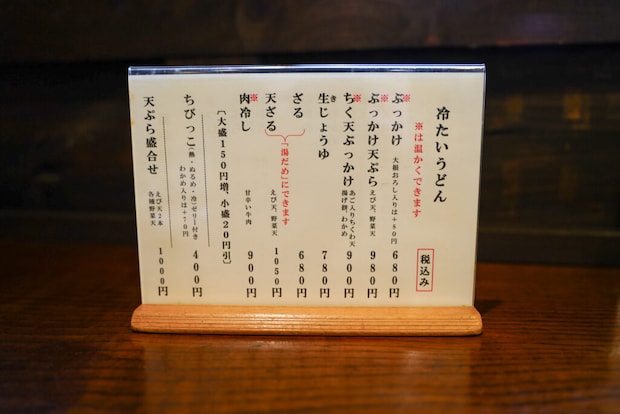 冷たいうどん
※は温かくできます
税込み
※ぶっかけ 大根おろし入りは+80円 680円
※ぶっかけ天ぷら えび天、野菜天 980円
※ちく天ぶっかけ あご入りちくわ天 揚げ餅、わかめ 900円
生じょうゆ 780円
き
ざる 680円
天ざる えび天、野菜天 1050円
「湯だめ」にできます
※肉冷し 甘辛い牛肉 900円
〔大盛150円増、小盛20円引〕
ちびっこ(熱・ぬるめ・冷)ゼリー付き わかめ入りは+70円 400円
天ぷら盛合せ えび天2本 各種野菜天 1000円